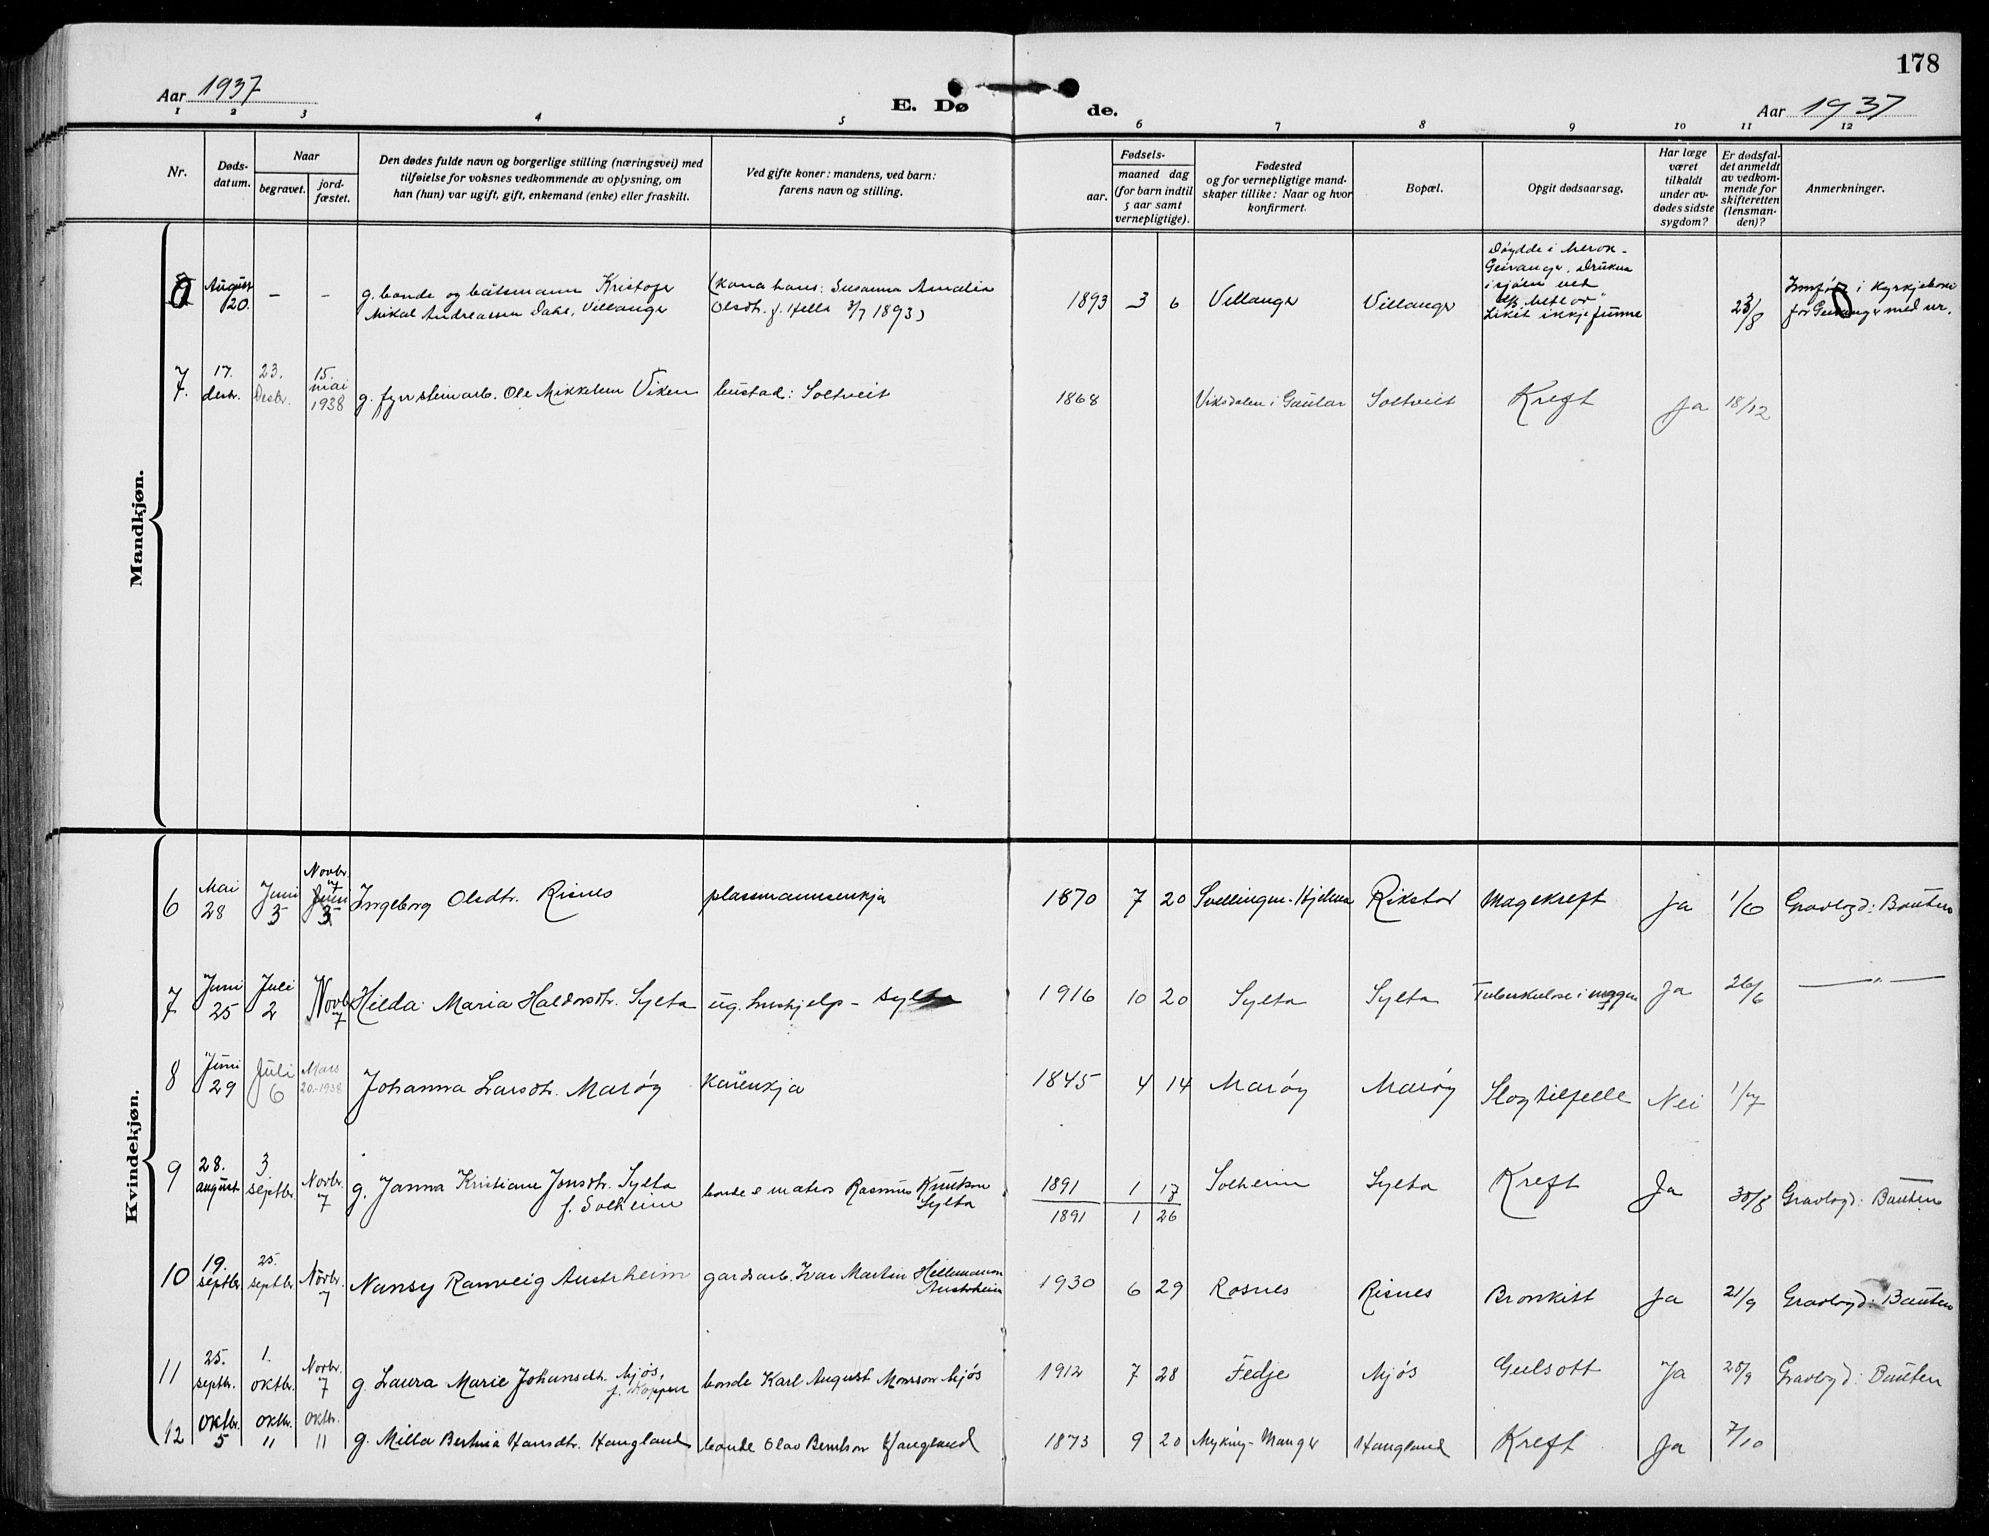 178
Aar 1937
E. Dø de.
Aar 1937
1 2 3 4 5 6 7 8 9 10 11 12
Nr.
Døds-datum.
Naar
begravet.
jord-fæstet.
Den dødes fulde navn og borgerlige stilling (næringsvei) med
tilføielse for voksnes vedkommende av oplysning, om
han (hun) var ugift, gift, enkemand (enke) eller fraskilt.
Ved gifte koner: mandens, ved barn:
farens navn og stilling.
Fødsels-
aar.
maaned dag
(for barn indtil
5 aar samt
vernepligtige).
Fødested
og for vernepligtige mand-
skaper tillike: Naar og hvor
konfirmert.
Bopæl.
Opgit dødsaarsag.
Har læge
været
tilkaldt
under av-
dødes sidste
sygdom?
Er dødsfal-
det anmeldt
av vedkom-
mende for
skifteretten
(lensman-
den)?
Anmerkninger.
Mandkjøn.
August 20. - - g. bonde og båtsmann Kristofer
Mikal Andreassen Dahl, Villanger
(kona hans: Susanna Amalia
Olsdtr. f. Hella 3/7 1893)
1893 3 6 Villanger Villanger
Døydde i Merok-
Geiranger, Drukna
i sjøen ved
Likit ikkje funne
23/8
i Kyrkjeboki
for Geiranger med nr.
7. 17. desbr. 23. Desbr. 15. mai 1938 g. fyrrsteinarb. Ole Mikkelsen Viken bustad: Soltveit 1868 Viksdalen i Gaular Soltveit Kreft Ja 18/12
Kvindekjøn.
6 Mai 28 Juni 5 Novbr. 7 Ingeborg Olsdtr. Risnes plassmannsenkja 1870 7 20 Svellingen-Hjelma Rikstad Magekreft Ja 1/6 Gravlagd: Bauten
7 Juni 25 Juli 2 Novb. 7 Hilda Maria Haldorsdtr. Sylta ug. hushjelp - Sylta 1916 10 20 Sylta Sylta Tuberkulose i magen Ja 26/6 —"—
8 Juni 29 Juli 6 Mars 20.-1938 Johanna Larsdtr. Marøy Kårenkja 1845 4 14 Marøy Marøy Slagtilfelle Nei 1/7
9 28. august 3 septbr. Novbr. 7 g. Janna Kristiane Jonsdtr. Sylta
f. Solheim
bonde & matros Rasmus Knutson
Sylta
1891 1 17
1891 1 26
Solheim Sylta Kreft Ja 30/8 Gravlagd: Bauten
10 19. septbr. 25. septbr. Novbr. 7 Nansy Ranveig Austrheim gardsarb. Ivar Martin Hillmarson
Austrheim
1930 6 29 Rosnes Risnes Bronkitt Ja 21/9 Gravlagd: Bauten
11 25. septbr. 1. oktbr. Novbr. 7 g. Laura Marie Johansdtr. Mjøs,
bonde Karl August Monsson Mjøs
1912 7 28 Fedje Mjøs Gulsott Ja 28/9 Gravlagd: Bauten
12 oktbr. 5 oktbr. 11 oktbr. 11 g. Milla Bertina Hansdtr. Haugland bonde Olav Berntson Haugland 1873 9 20 Myking-Manger Haugland Kreft Ja 7/10